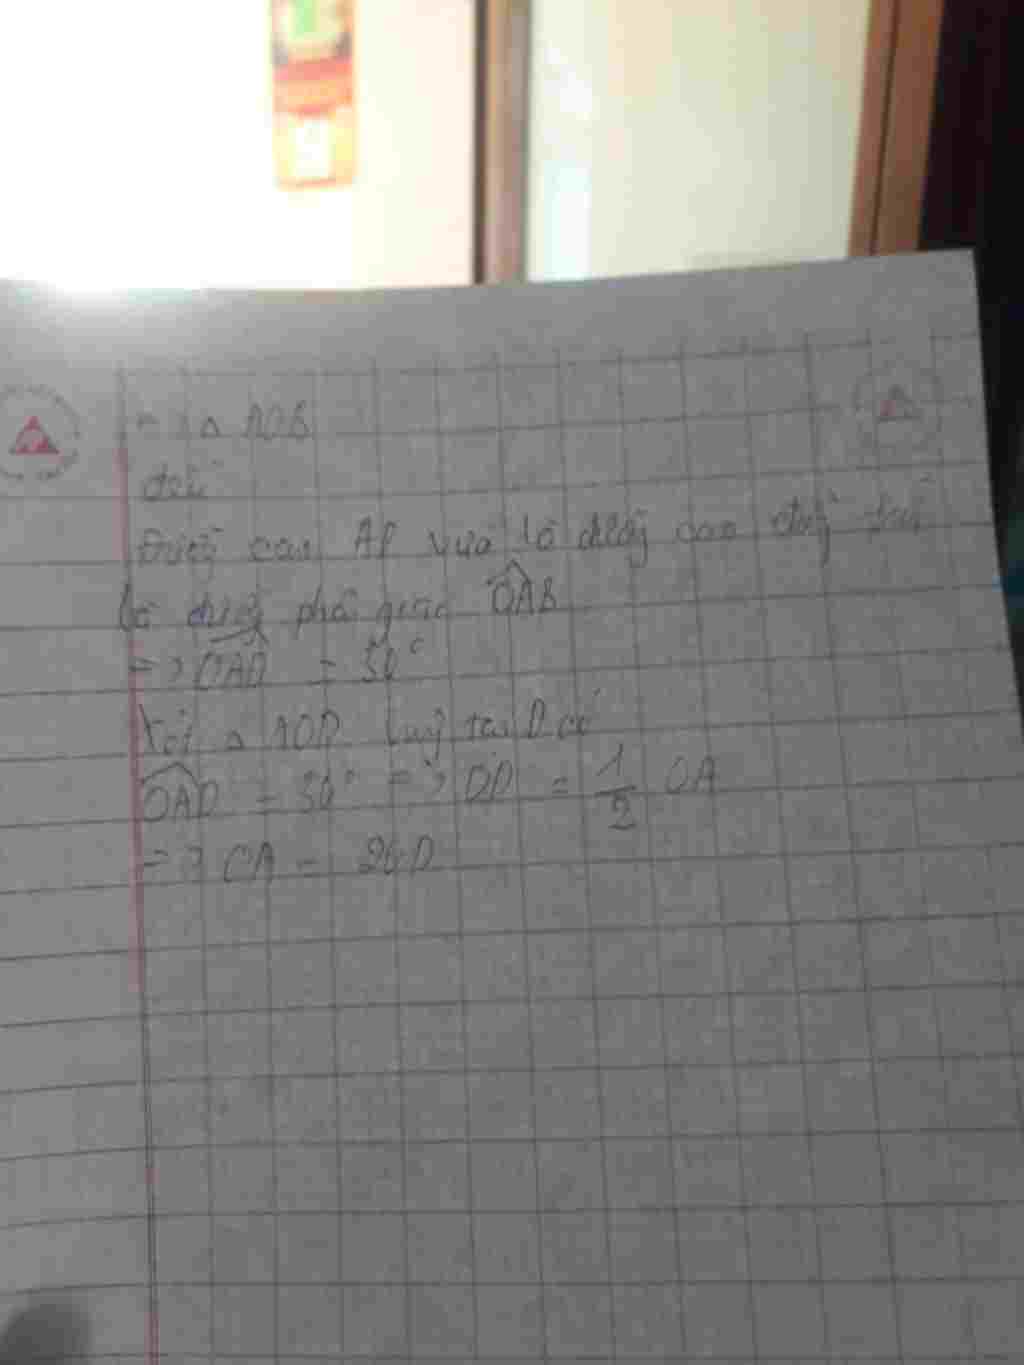 => Δ AOB
đều
Đường cao AD vừa là đường cao đồng thời
là đường phân giác OAB
=> OAD = 30°
Xét Δ AOD vuông tại D có
OAD = 30° => OD = 1/2 OA
=> OA = 2OD